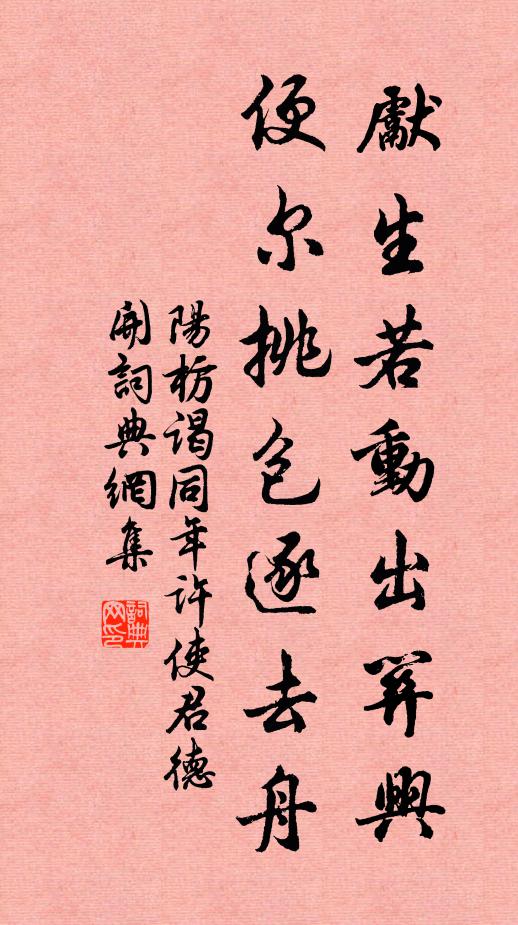 獻生若動出關興
便尔挑包逐去舟
陽枋謁同年許使君德
開詞典網集
詞典
网印